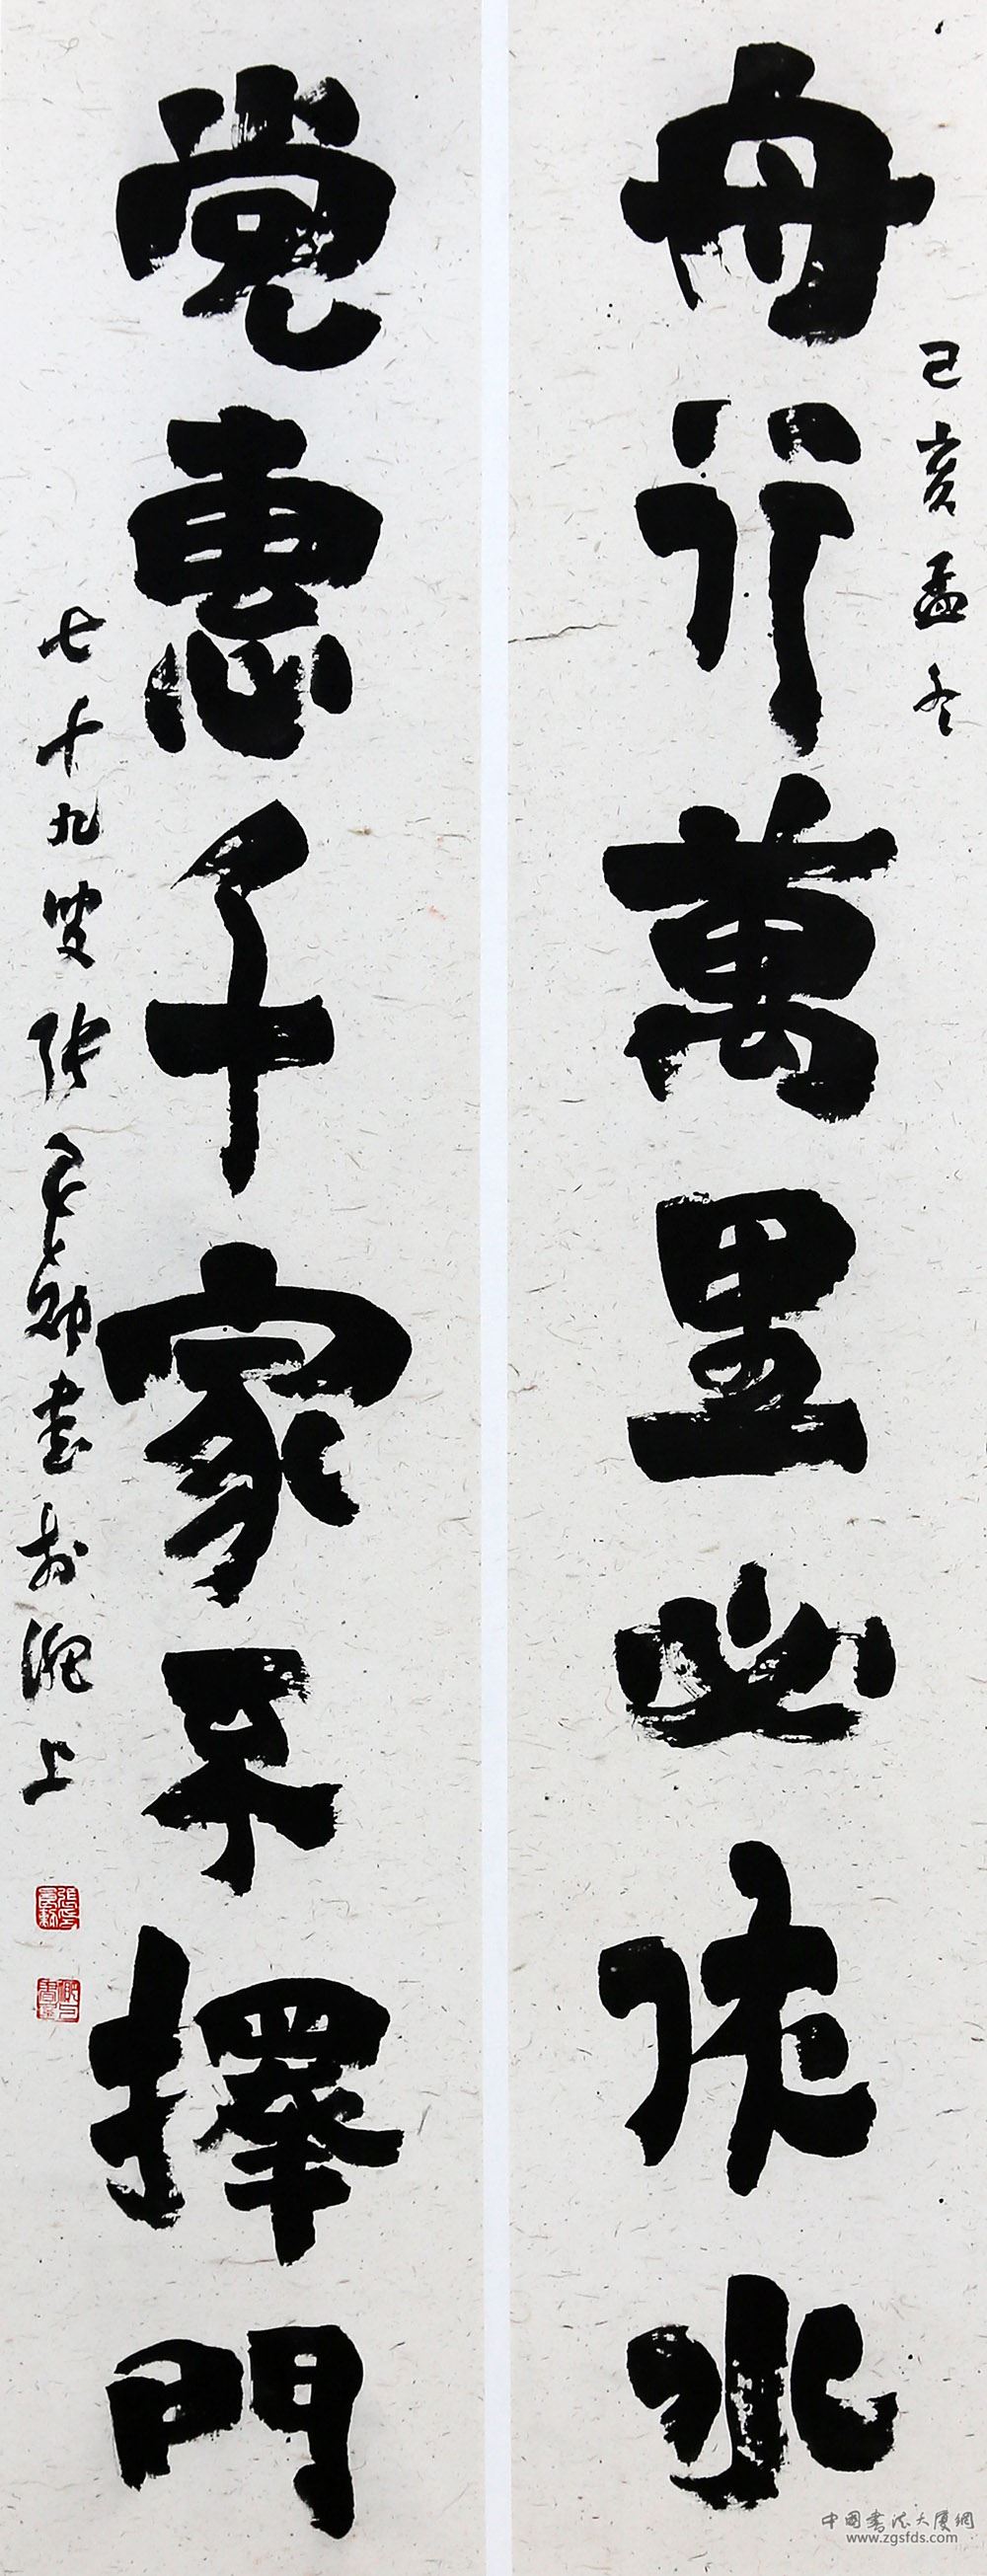 己亥孟冬
舟行萬里必依水
党惠千家不擇門
七十九叟張良勛書於淝上
中國書法大廈網
www.zgsfds.com